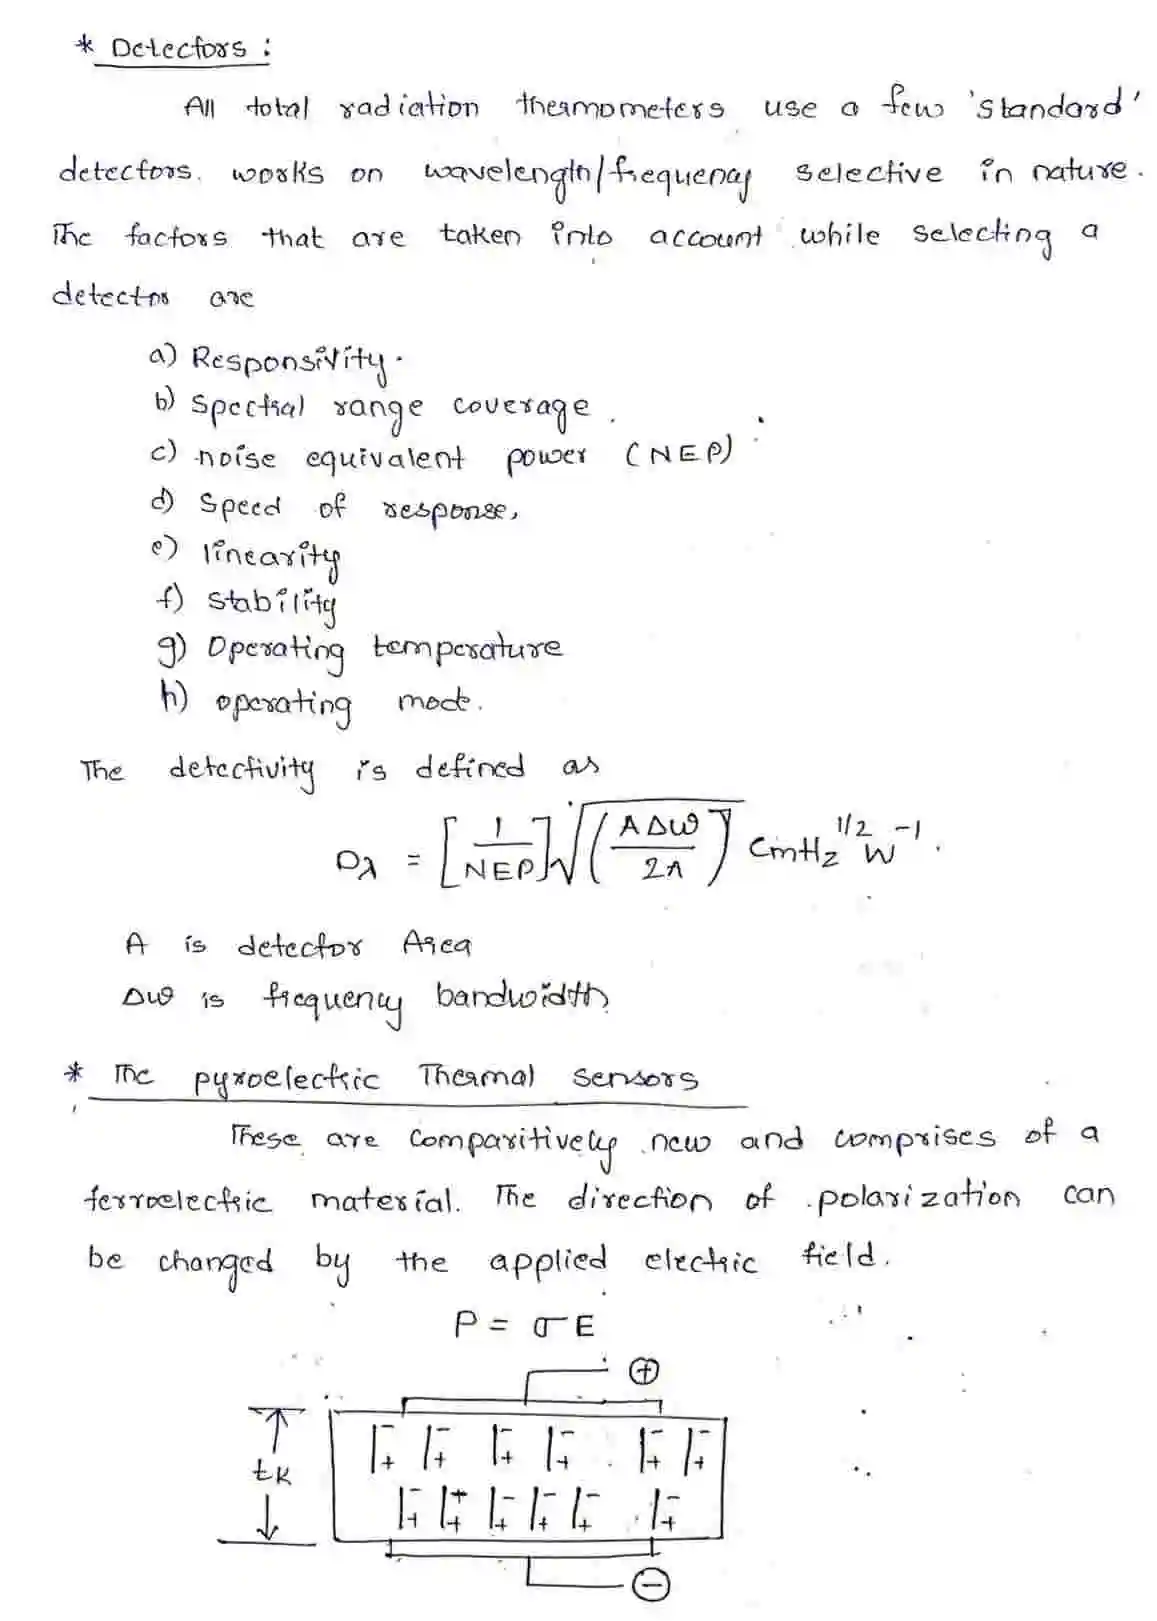 * Detectors :
All total radiation thermometers use a few 'standard'
detectors. works on wavelength/frequency selective in nature.
The factors that are taken into account while selecting a
detector are
a) Responsivity.
b) Spectral range coverage.
c) noise equivalent power (NEP)
d) Speed of response,
e) linearity
f) stability
g) Operating temperature
h) operating mode.
The detectivity is defined as
Dλ = [1/NEP]√(AΔω/2Λ) CmHz^1/2 W^-1.
A is detector Area
Δω is frequency bandwidth
* The pyroelectric Thermal sensors
These are comparitively new and comprises of a
ferroelectric material. The direction of polarization can
be changed by the applied electric field.
P = σE
+
tK
− − − − − −
+ + + + + +
− + − − − −
+ + + + + +
−